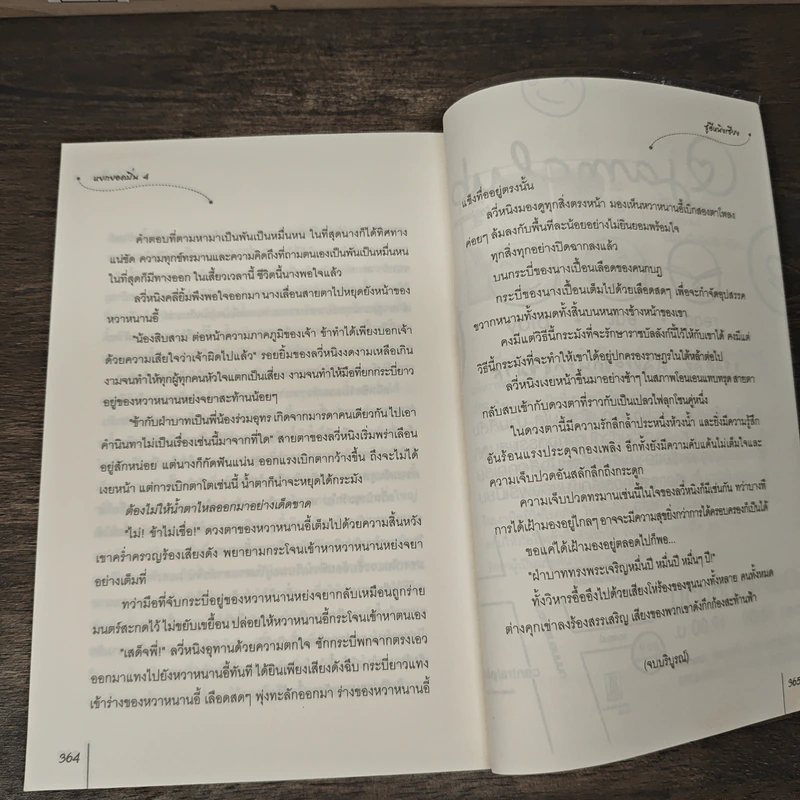 หยกยอดปิ่น 4
คำตอบที่ตามหามาเป็นพันเป็นหมื่นหน ในที่สุดนางก็ได้ทิศทาง
แน่ชัด ความทุกข์ทรมานและความคิดถึงที่ถามตนเองเป็นพันเป็นหมื่นหน
ในที่สุดก็มีทางออก ในเสี้ยวเวลานี้ ชีวิตนี้นางพอใจแล้ว
ลวี่หนิงคลี่ยิ้มพึงพอใจออกมา นางเลื่อนสายตาไปหยุดยังหน้าของ
หวาหนานอี้
"น้องสิบสาม ต่อหน้าความภาคภูมิของเจ้า ข้าทำได้เพียงบอกเจ้า
ด้วยความเสียใจว่าเจ้าผิดไปแล้ว" รอยยิ้มของลวี่หนิงงดงามเหลือเกิน
งามจนทำให้ทุกผู้ทุกคนหัวใจแตกเป็นเสี่ยง งามจนทำให้มือที่ยกกระบี่ยาว
อยู่ของหวาหนานหย่งจยาสะท้านน้อยๆ
"ข้ากับฝ่าบาทเป็นพี่น้องร่วมอุทร เกิดจากมารดาคนเดียวกัน ไปเอา
คำนินทาไม่เป็นเรื่องเช่นนี้มาจากที่ใด" สายตาของลวี่หนิงเริ่มพร่าเลือน
อยู่สักหน่อย แต่นางก็กัดฟันแน่น ออกแรงเบิกตากว้างขึ้น ถึงจะไม่ได้
เงยหน้า แต่การเบิกตาโตเช่นนี้ น้ำตาก็น่าจะหยุดได้กระมัง
ต้องไม่ให้น้ำตาไหลออกมาอย่างเด็ดขาด
"ไม่! ข้าไม่เชื่อ!" ดวงตาของหวาหนานอี้เต็มไปด้วยความสิ้นหวัง
เขาคร่ำครวญร้องเสียงดัง พยายามกระโจนเข้าหาหวาหนานหย่งจยา
อย่างเต็มที่
ทว่ามือที่จับกระบี่อยู่ของหวาหนานหย่งจยากลับเหมือนถูกร่าย
มนตร์สะกดไว้ ไม่ขยับเขยื้อน ปล่อยให้หวาหนานอี้กระโจนเข้าหาตนเอง
"เสด็จพี่!" ลวี่หนิงอุทานด้วยความตกใจ ชักกระบี่พกจากตรงเอว
ออกมาแทงไปยังหวาหนานอี้ทันที ได้ยินเพียงเสียงดังฉึบ กระบี่ยาวแทง
เข้าร่างของหวาหนานอี้ เลือดสดๆ พุ่งทะลักออกมา ร่างของหวาหนานอี้
364
แข็งทื่ออยู่ตรงนั้น
ลวี่หนิงมองดูทุกสิ่งตรงหน้า มองเห็นหวาหนานอี้เบิกสองตาโพลง
ค่อยๆ ล้มลงกับพื้นทีละน้อยอย่างไม่ยินยอมพร้อมใจ
ทุกสิ่งทุกอย่างปิดฉากลงแล้ว
บนกระบี่ของนางเปื้อนเลือดของคนกบฏ
กระบี่ของนางเปื้อนเต็มไปด้วยเลือดสดๆ เพื่อจะกำจัดอุปสรรค
ขวากหนามทั้งหมดทั้งสิ้นบนหนทางข้างหน้าของเขา
คงมีแต่วิธีนี้กระมังที่จะรักษาราชบัลลังก์นี้ไว้ให้กับเขาได้ คงมีแต่
วิธีนี้กระมังที่จะทำให้เขาได้อยู่ปกครองราษฎรในใต้หล้าต่อไป
ลวี่หนิงเงยหน้าขึ้นมาอย่างช้าๆ ในสภาพโอนเอนแทบทรุด สายตา
กลับสบเข้ากับดวงตาที่ราวกับเป็นเปลวไฟลุกโชนคู่หนึ่ง
ในดวงตานี้มีความรักลึกล้ำประหนึ่งห้วงน้ำ และยิ่งมีความรู้สึก
อันร้อนแรงประดุจกองเพลิง อีกทั้งยังมีความคับแค้นไม่เต็มใจและ
ความเจ็บปวดอันสลักลึกถึงกระดูก
ความเจ็บปวดทรมานเช่นนี้ในใจของลวี่หนิงก็มีเช่นกัน ทว่าบางที
การได้เฝ้ามองอยู่ไกลๆ อาจจะมีความสุขยิ่งกว่าการได้ครอบครองก็เป็นได้
ขอแค่ได้เฝ้ามองอยู่ตลอดไปก็พอ...
"ฝ่าบาททรงพระเจริญหมื่นปี หมื่นปี หมื่นๆ ปี!"
ทั้งวิหารอื้ออึงไปด้วยเสียงโห่ร้องของขุนนางทั้งหลาย คนทั้งหมด
ต่างคุกเข่าลงร้องสรรเสริญ เสียงของพวกเขาดังกึกก้องสะท้านฟ้า
(จบบริบูรณ์)
365